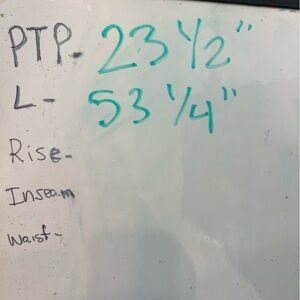 PTP- 23 1/2"
L - 53 1/4"
Rise-
Inseam
Waist-